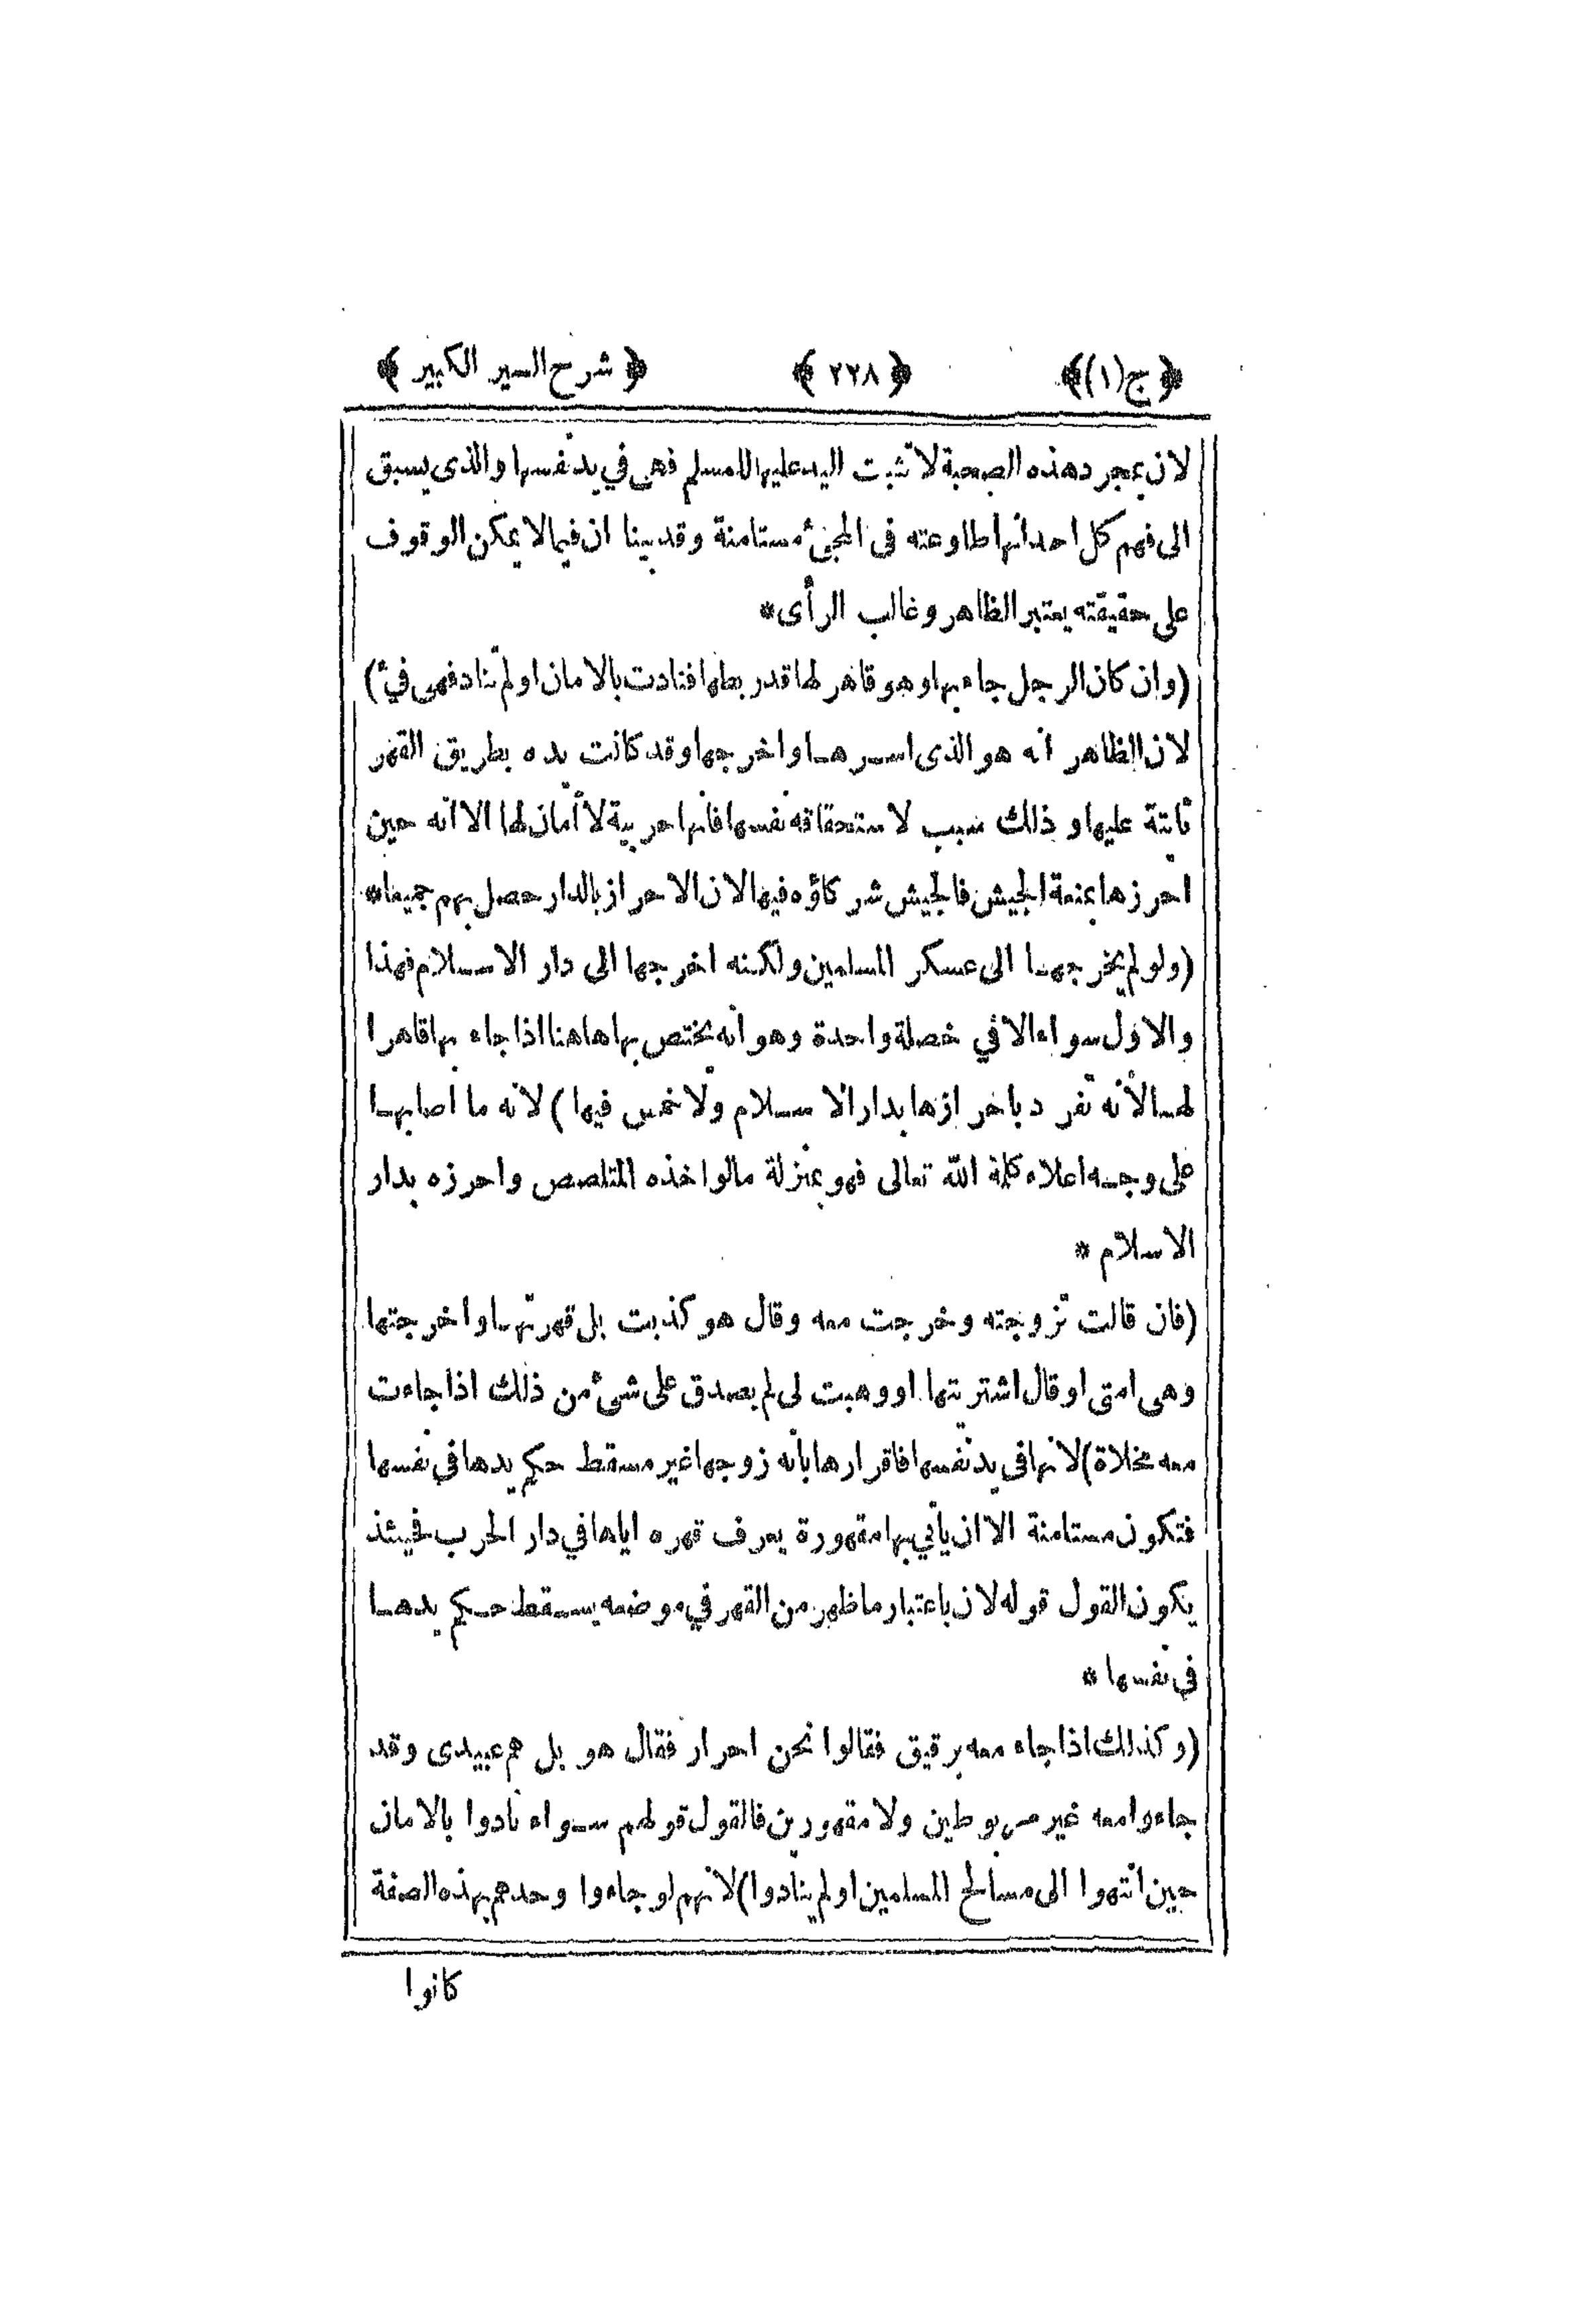 ﴿ ج (١) ﴾ ﴿ ٢٢٨ ﴾ ﴿ شرح السير الكبير ﴾
لان بمجرد هذه الصحبة لا تثبت اليد عليها للمسلم فهى في يد نفسها والذى يسبق
الى فهم كل احد انها طاوعته فى المجئ مستامنة وقد بينا ان فيما لا يمكن الوقوف
على حقيقته يعتبر الظاهر وغالب الرأى *
(وان كان الرجل جاء بها وهو قاهر لها قد ربطها فنادت بالامان او لم تناد فهى فيئ)
لان الظاهر انه هو الذى اسرها واخرجها وقد كانت يده بطريق القهر
ثابتة عليها و ذلك سبب لاستحقاقه نفسها فانها حربية لا أمان لها الا انه حين
احرزها بمنعة الجيش فالجيش شركاؤه فيها لان الاحراز بالدار حصل بهم جميعا *
(ولو لم يخرجها الى عسكر المسلمين ولكنه اخرجها الى دار الاسلام فهذا
والاول سواء الا في خصلة واحدة وهو انه يختص بها هاهنا اذا جاء بها قاهرا
لها لأنه تفرد باحرازها بدار الاسلام ولا خمس فيها) لانه ما اصابها
على وجه اعلاء كلمة الله تعالى فهو بمنزلة مالو اخذه المتلصص واحرزه بدار
الاسلام *
(فان قالت تزوجته وخرجت معه وقال هو كذبت بل قهرتها واخرجتها
وهى امتى او قال اشتريتها او وهبت لى لم يصدق على شئ من ذلك اذا جاءت
معه مخلاة) لانها فى يد نفسها فاقرارها بأنه زوجها غير مسقط حكم يدها في نفسها
فتكون مستامنة الا ان يأتي بها مقهورة يعرف قهره اياها في دار الحرب فحينئذ
يكون القول قوله لان باعتبار ما ظهر من القهر في موضعه يسقط حكم يدها
فى نفسها *
(وكذلك اذا جاء معه برقيق فقالوا نحن احرار فقال هو بل هم عبيدى وقد
جاءوا معه غير مربوطين ولا مقهورين فالقول قولهم سواء نادوا بالامان
حين انتهوا الى مسالح المسلمين او لم ينادوا) لانهم لو جاءوا وحدهم بهذه الصفة
كانوا